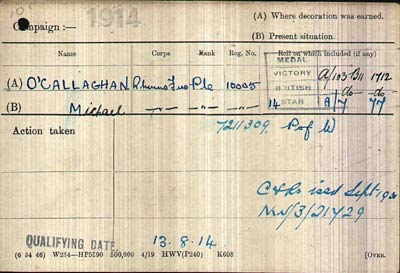 1914
Campaign :—
(A) Where decoration was earned.
(B) Present situation.
Name Corps Rank Reg. No. Roll on which included (if any)
MEDAL
(A) O'CALLAGHAN R. Muns Fus Pte 10005 VICTORY A/103 B11 1712
(B) Michael —"— —"— BRITISH do do
14 STAR A/7 77
Action taken 7211309. P of W
C & Rs issd Sept 192
NW/3/21429
QUALIFYING DATE 13.8.14.
(6 34 46) W234—HP5590 500,000 4/19 HWV(P240) K608 [Over.